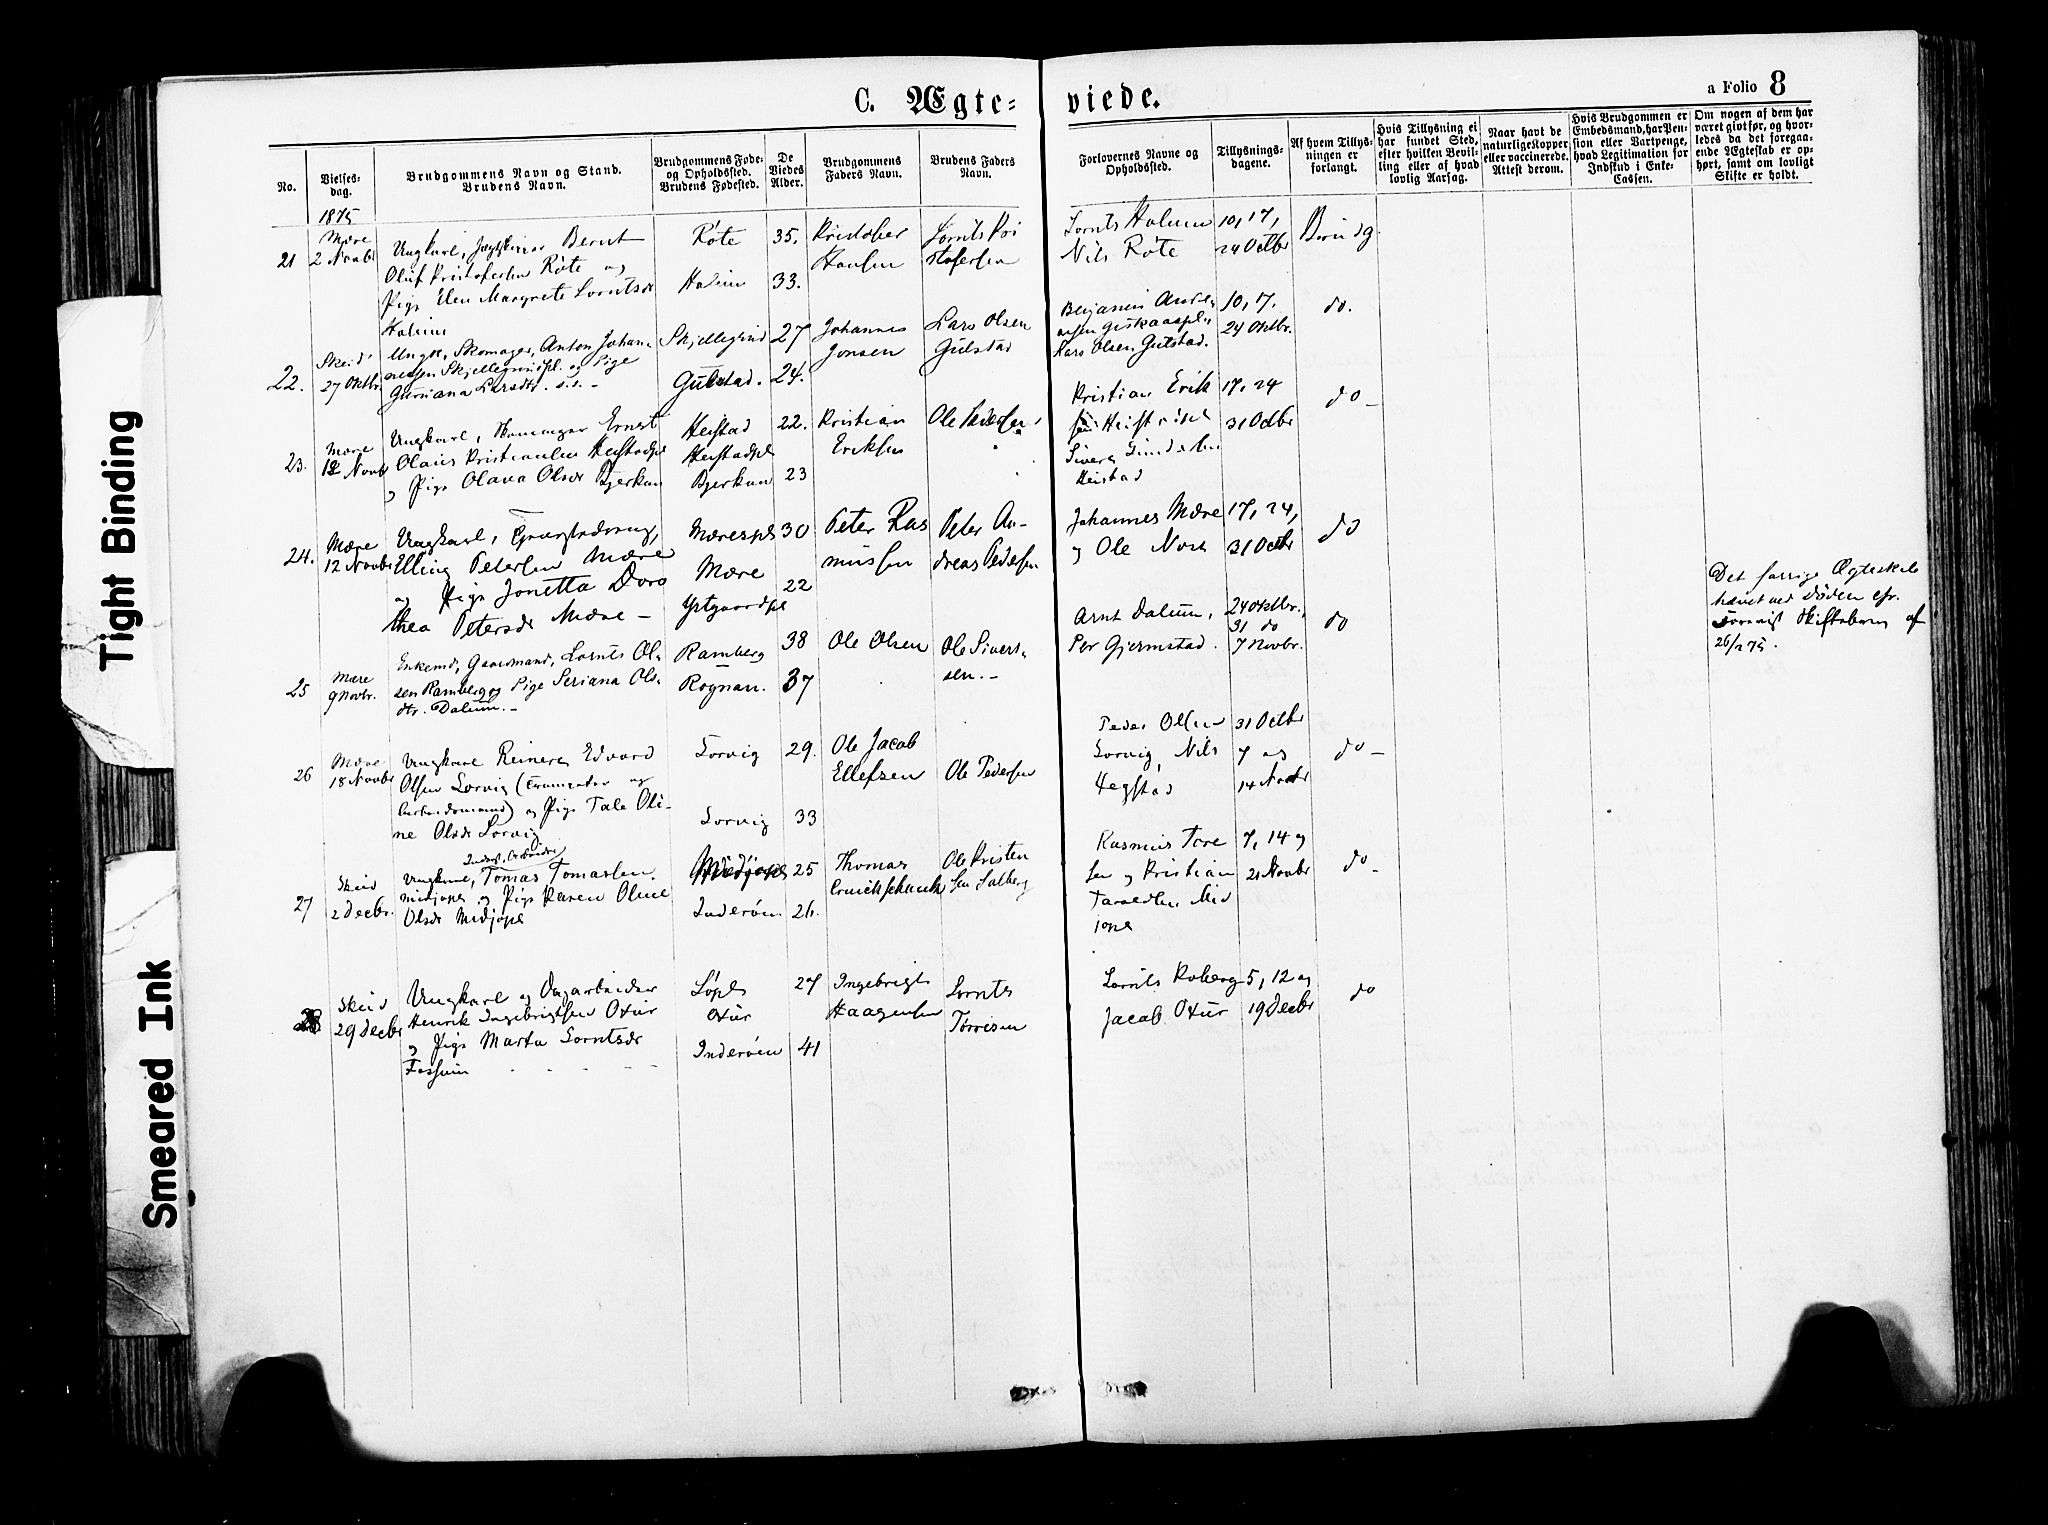 C. Ægte=
viede.
a Folio 8
No.
Vielses-
dag.
Brudgommens Navn og Stand.
Brudens Navn.
Brudgommens Føde-
og Opholdssted.
Brudens Fødested.
De
Viedes
Alder.
Brudgommens
Faders Navn.
Brudens Faders
Navn.
Forlovernes Navne og
Opholdssted.
Tillysnings-
dagene.
Af hvem Tillys-
ningen er
forlangt.
Hvis Tillysning ei
har fundet Sted,
efter hvilken Bevil-
ling eller af hvad
lovlig Aarsag.
Naar havt de
naturlige Kopper
eller vaccinerede.
Attest derom.
Hvis Brudgommen er
Embedsmand, har Pen-
sion eller Vartpenge,
hvad Legitimation for
Indskud i Enke-
Cassen.
Om nogen af dem har
været givt før, og hvor-
ledes da det foregaa-
ende Ægteskab er op-
hørt, samt om lovligt
Skifte er holdt.
1875
21
Mære
2 Novbr
Ungkarl, Bernt
Oluf Kristofersen Røte og
Pige Elen Margrete Lorntsdr
Halum
Røte
Halum
35.
33.
Kristofer
Hansen
Lornts Kri
stofersen
Lornts Halum
Nils Røte
10, 17,
24 Octbr
Brudg.
22.
Skeid
27 Oktbr.
Ungk., Skomager, Anton Johan-
nessen Skjellegrindpl. og Pige
Guruana Larsdtr.
Skjellegrind
Gulstad.
27
24.
Johannes
Jonsen
Lars Olsen
Gulstad
Benjamin Andr.
Lars Olsen Gulstad.
10, 17.
24 Oktbr.
do.
23.
Mære
12 Novbr
Ungkarl, Skomager Ernst
Olaus Kristiansen Heistadpl
og Pige Olava Olsdr Bjerkan
Heistad
Heistadpl
Bjerkan
22.
23
Kristian
Eriksen
Ole Pedersen
Kristian Erik
Sivert Gundersen
Heistad
17, 24
31 Octbr
do -
24.
Mære
12 Novbr
Ungkarl,
Elling Petersen Mære
og Pige Jonetta Doro
thea Petersdr Mære -
Mærespl
Mære
Ystgaardpl
30
22
Peter Ras
mussen
Peter An-
dreas Pedersen
Johannes Mære
og Ole
17, 24,
31 Octbr
do
25
Mære
9 Novbr.
Enkemd, Gaardmand, Lornts Ol-
sen Ramberg og Pige Seriana Ols-
dtr. Dalum. -
Ramberg
Rognan.
38
37
Ole Olsen
Ole Sivert-
sen. -
Arnt Dalum,
Per Gjermstad.
24 Oktbr.,
31 do
7 Novbr.
do
Det forrige Ægteskab
hævet ved Døden cfr.
Skiftebrev af
26/2 75.
26
Mære
18 Novbr
Ungkarl Reinert Edvard
Olsen Lorvig (
arbeidsmand) og Pige Tale Oli-
ne Olsdr Lorvig
Lorvig
Lorvig
29.
33
Ole Jacob
Ellefsen
Ole Pedersen
Peder Olsen
Lorvig, Nils
Hegstad
31 Octbr
7 og
14 Novbr
do -
27
Skeid
2 Decbr.
Inderst, Arbeider
Ungkarl, Tomas Tomassen
Midjopl og Pige Karen Oline
Olsdr Midjopl
Midjopl
Inderøen
25
26.
Thomas
Cruickshank
Ole Kristen
sen Salberg
Rasmus Tore
sen og Kristian
Mid
jopl
7, 14 og
21 Novbr
do -
28
Skeid
29 Decbr
Ungkarl og Dagarbeider
Henrik Ingebrigtsen Oxur
og Pige Marta Lorntsdr
Fossum
Løpl
Oxur
Inderøen
27
41
Ingebrigt
Haagensen
Lornts
Torrisen
Lornts Roberg
Jacob Oxur
5, 12 og
19 Decbr
do
Tight Binding
Smeared Ink